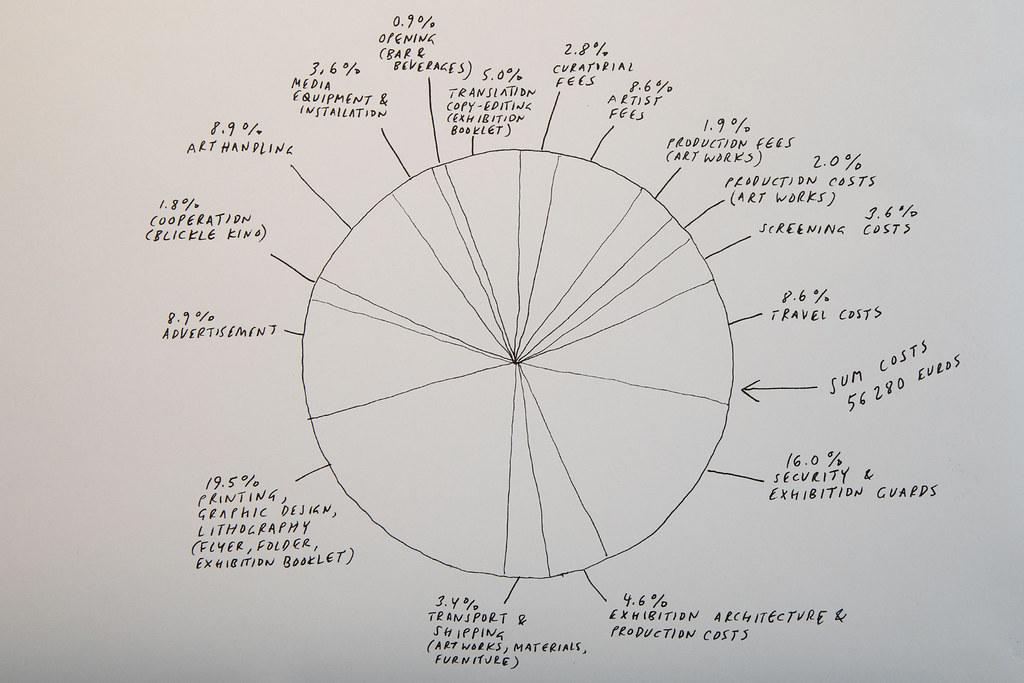 0.9%
OPENING
(BAR &
BEVERAGES)
5.0%
TRANSLATION
COPY-EDITING
(EXHIBITION
BOOKLET)
2.8%
CURATORIAL
FEES
8.6%
ARTIST
FEES
1.9%
PRODUCTION FEES
(ART WORKS)
2.0%
PRODUCTION COSTS
(ART WORKS)
3.6%
SCREENING COSTS
8.6%
TRAVEL COSTS
SUM COSTS
56 280 EUROS
16.0%
SECURITY &
EXHIBITION GUARDS
4.6%
EXHIBITION ARCHITECTURE &
PRODUCTION COSTS
3.4%
TRANSPORT &
SHIPPING
(ART WORKS, MATERIALS,
FURNITURE)
19.5%
PRINTING,
GRAPHIC DESIGN,
LITHOGRAPHY
(FLYER, FOLDER,
EXHIBITION BOOKLET)
8.9%
ADVERTISEMENT
1.8%
COOPERATION
(BLICKLE KINO)
8.9%
ART HANDLING
3,6%
MEDIA
EQUIPMENT &
INSTALLATION